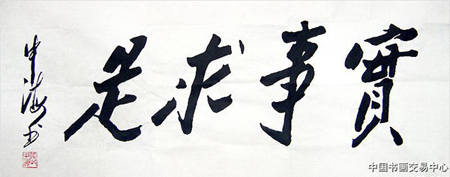 實事求是
中海书
中国书画交易中心